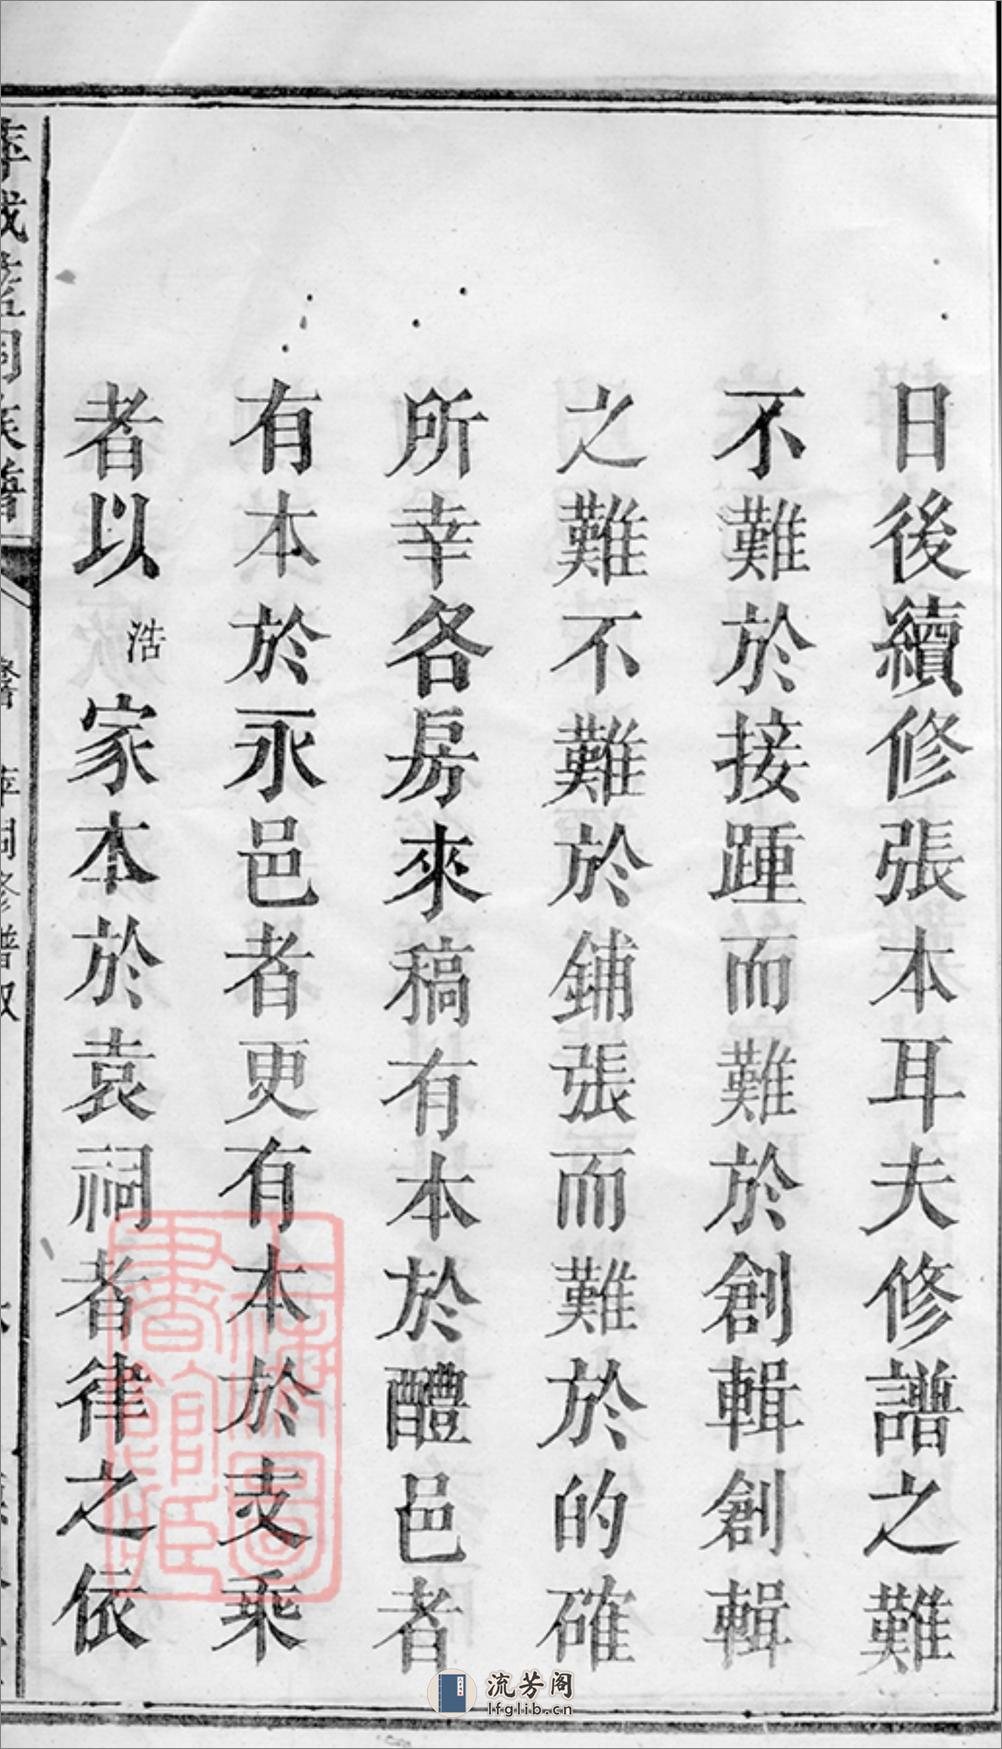 日後續修張本耳夫修譜之難
不難於接踵而難於創輯創輯
之難不難於鋪張而難於的確
所幸各房來稿有本於醴邑者
有本於永邑者更有本於支乘
者以浩家本於袁祠者律之依
族譜
祠修譜叙
上海圖書館藏
流芳阁
lfglib.cn